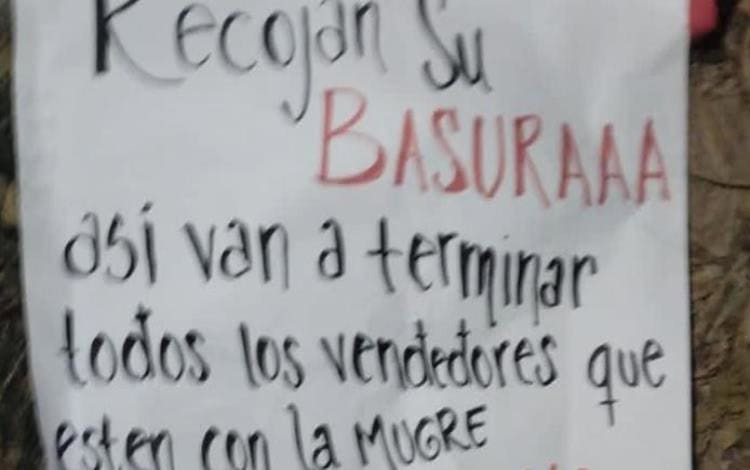 Recojan Su
BASURAAA
asi van a terminar
todos los vendedores que
esten con la MUGRE